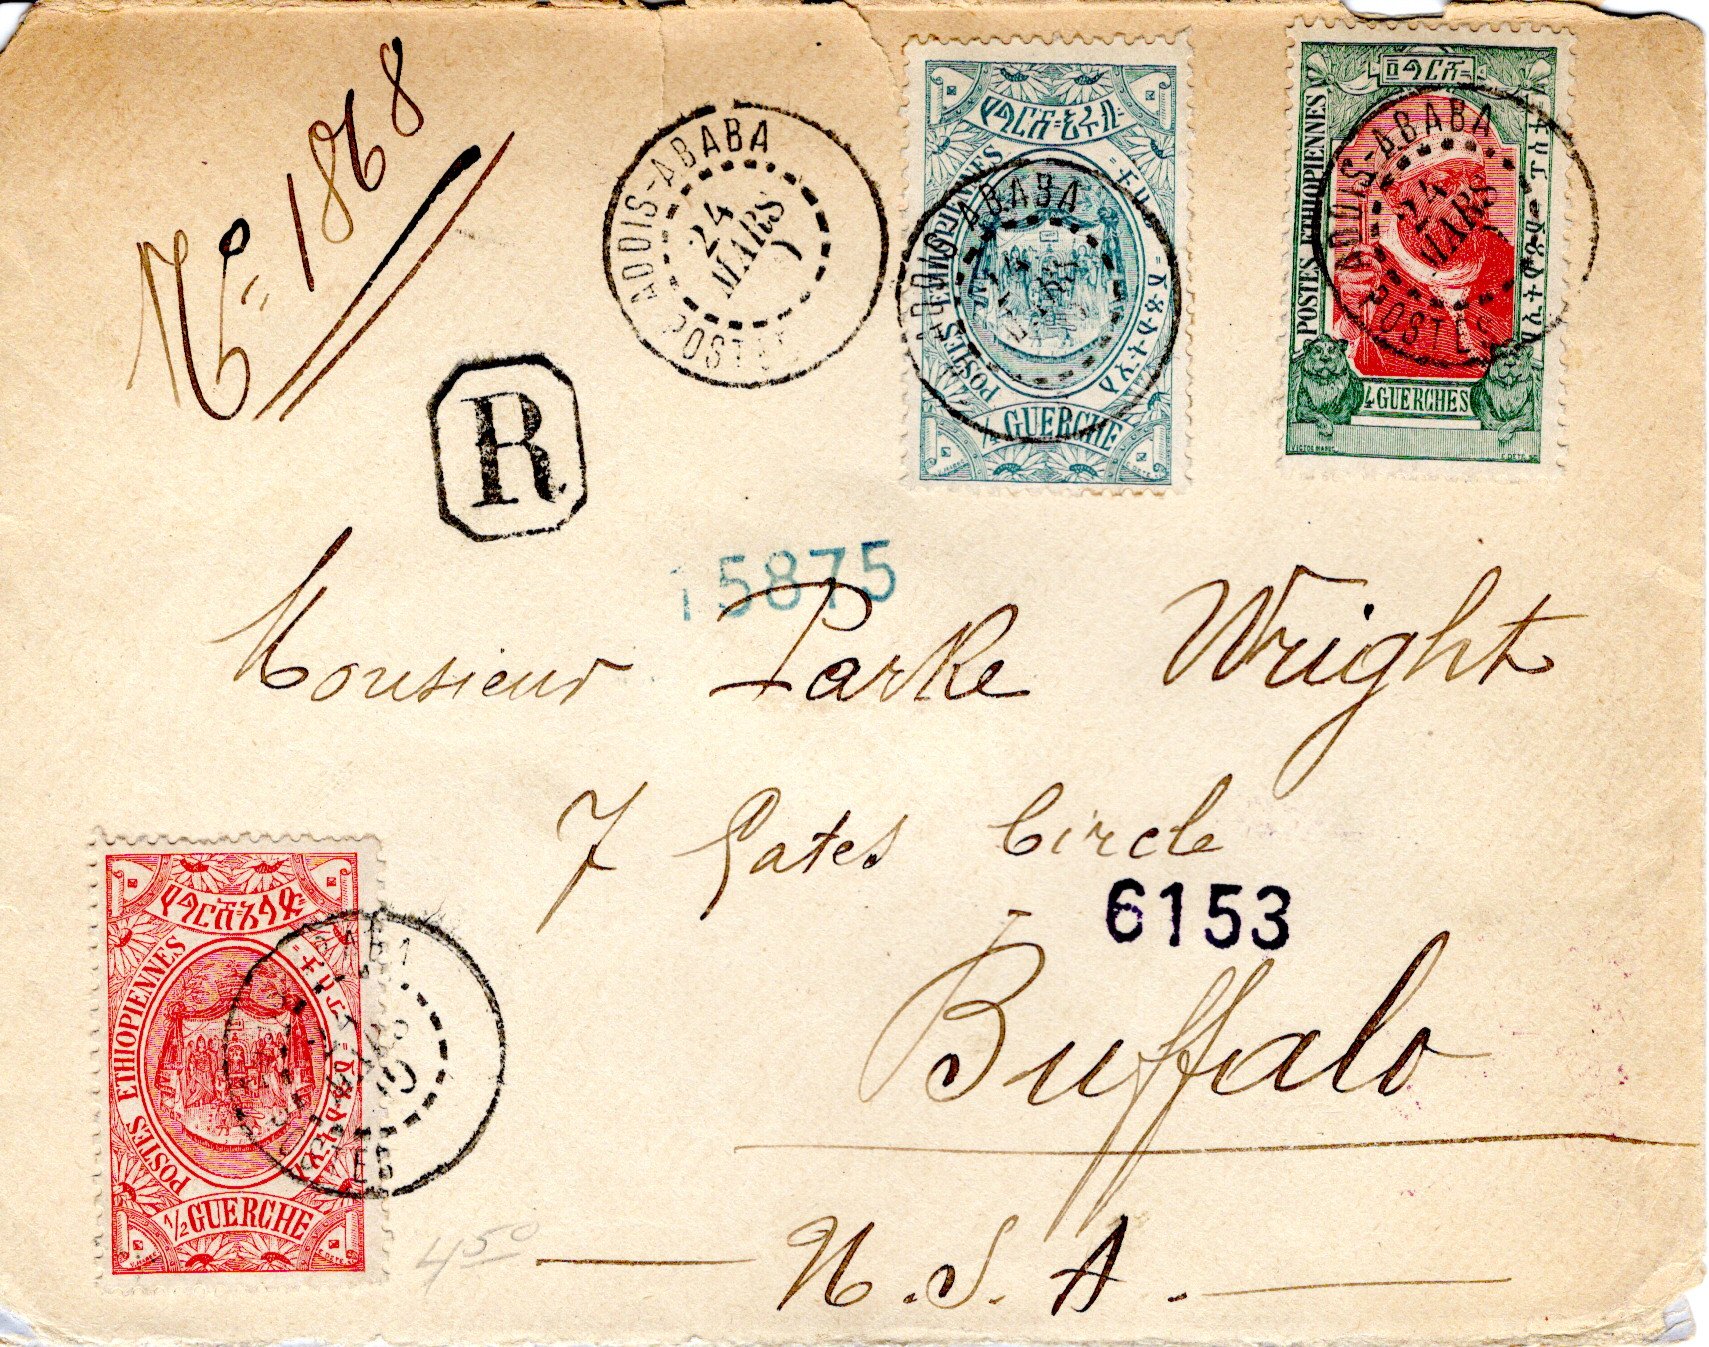 No 1868
ADDIS-ABABA
24
MARS
POSTES
ADDIS-ABABA
POSTES ETHIOPIENNES
1/4 GUERCHE
ADDIS-ABABA
24
MARS
POSTES
POSTES ETHIOPIENNES
4 GUERCHES
R
15875
Monsieur Parke Wright
7 Gates Circle
6153
Buffalo
U.S.A.
POSTES ETHIOPIENNES
1/2 GUERCHE
450